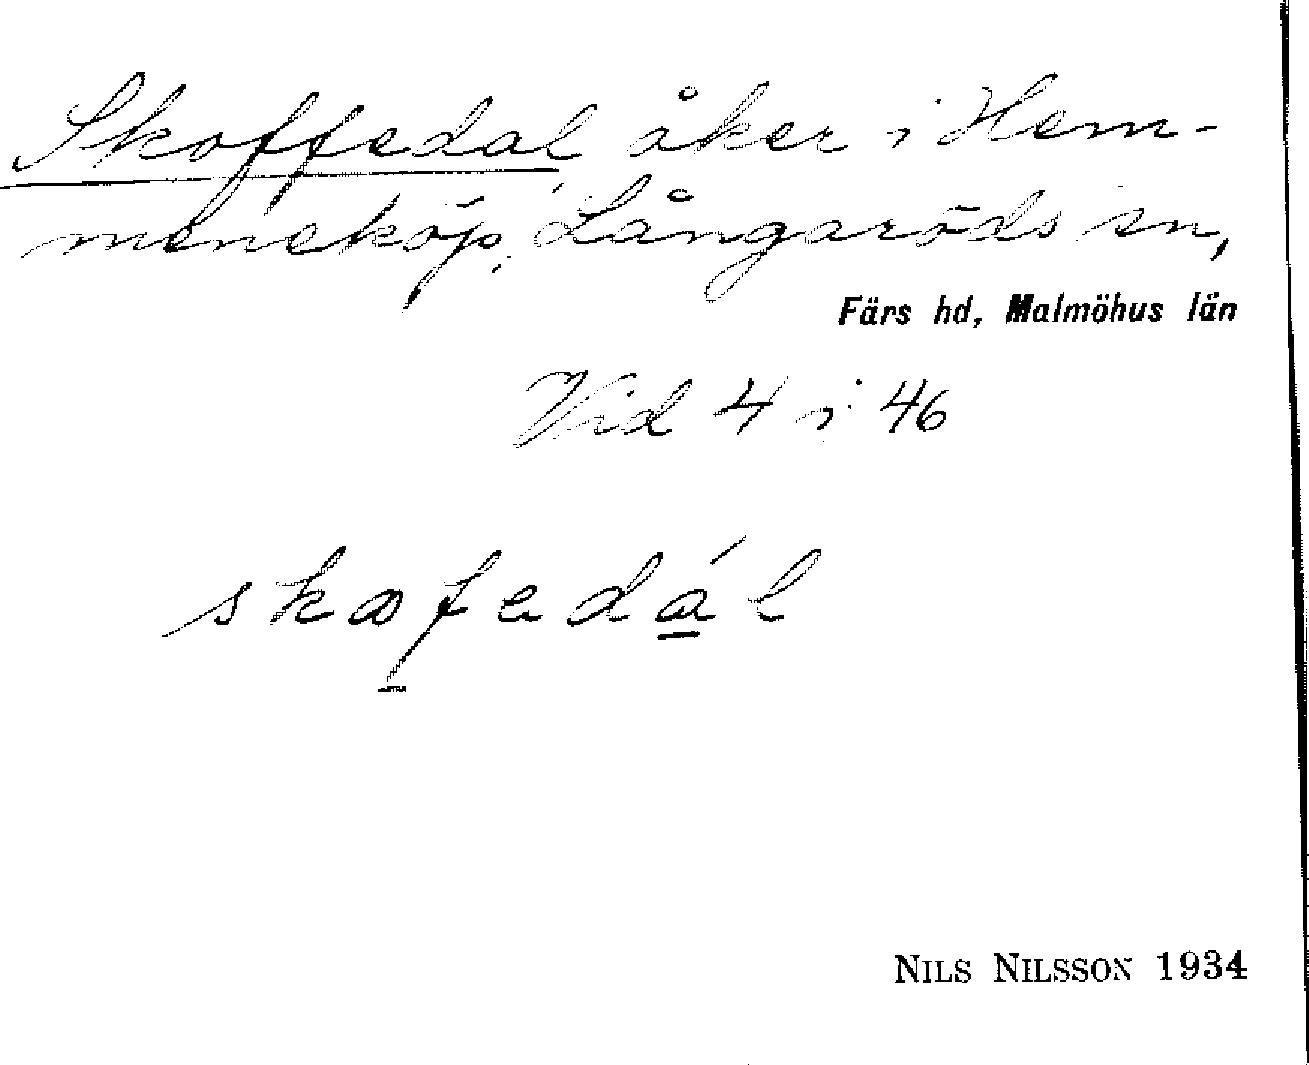 Skoffedal åker i Hem-
meneköp, Långaröds sn,
Färs hd, Malmöhus län
Vid 4 i 46
skofedál
NILS NILSSON 1934